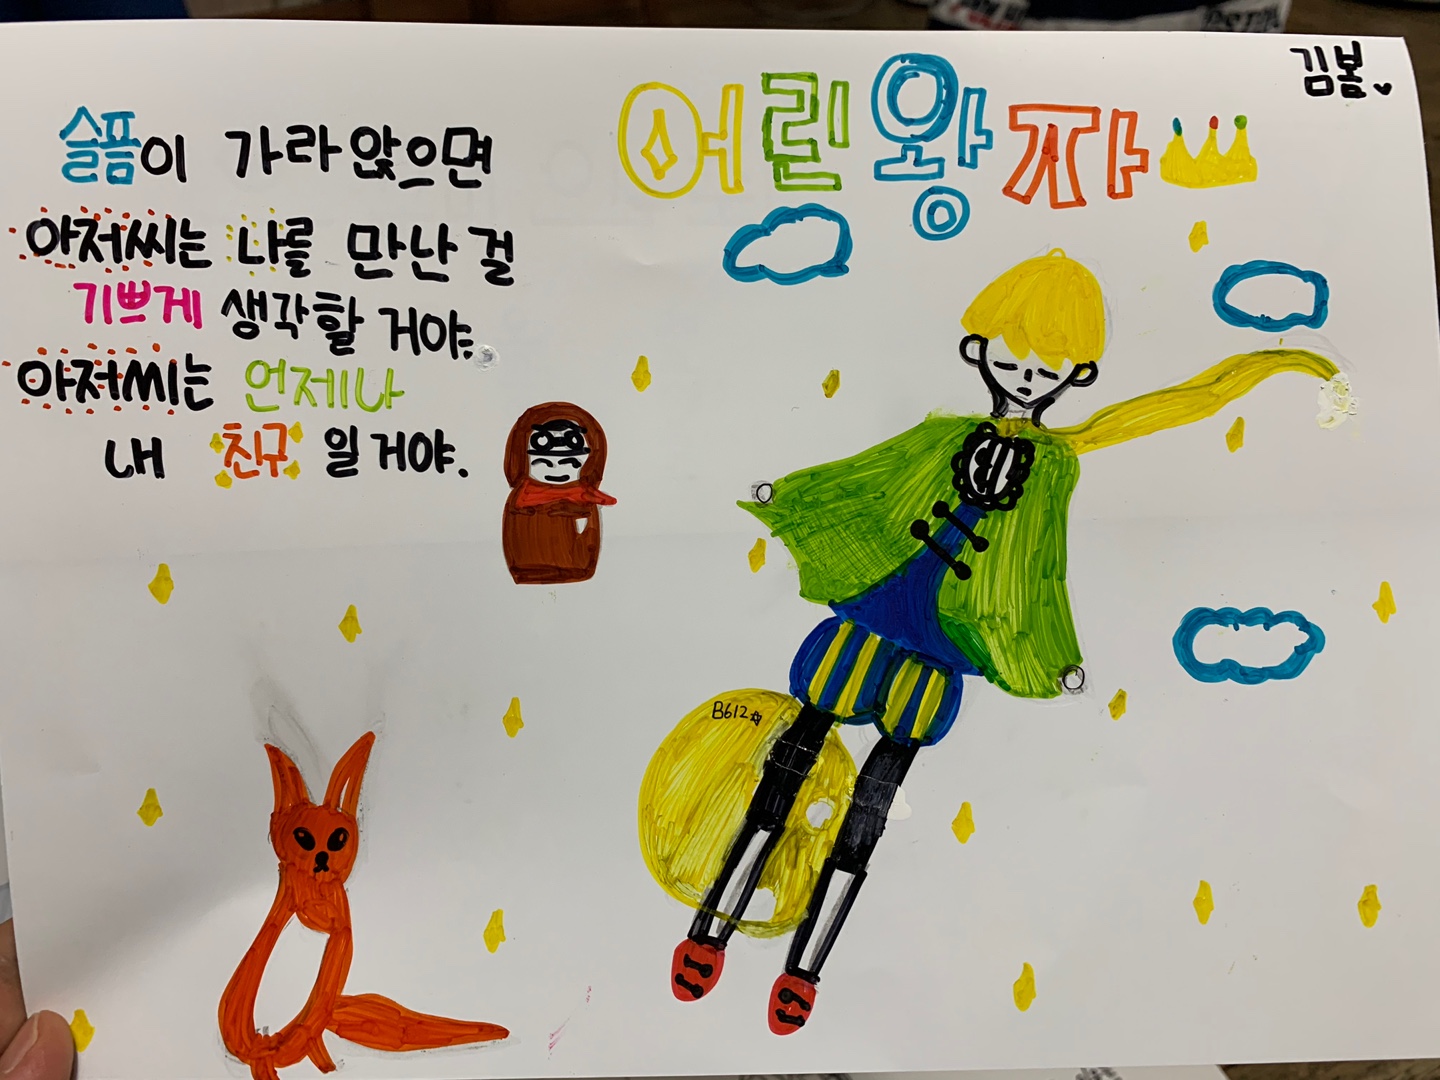 어린왕자
김봄
슬픔이 가라앉으면
아저씨는 나를 만난 걸
기쁘게 생각할 거야.
아저씨는 언제나
내 친구 일 거야.
B612